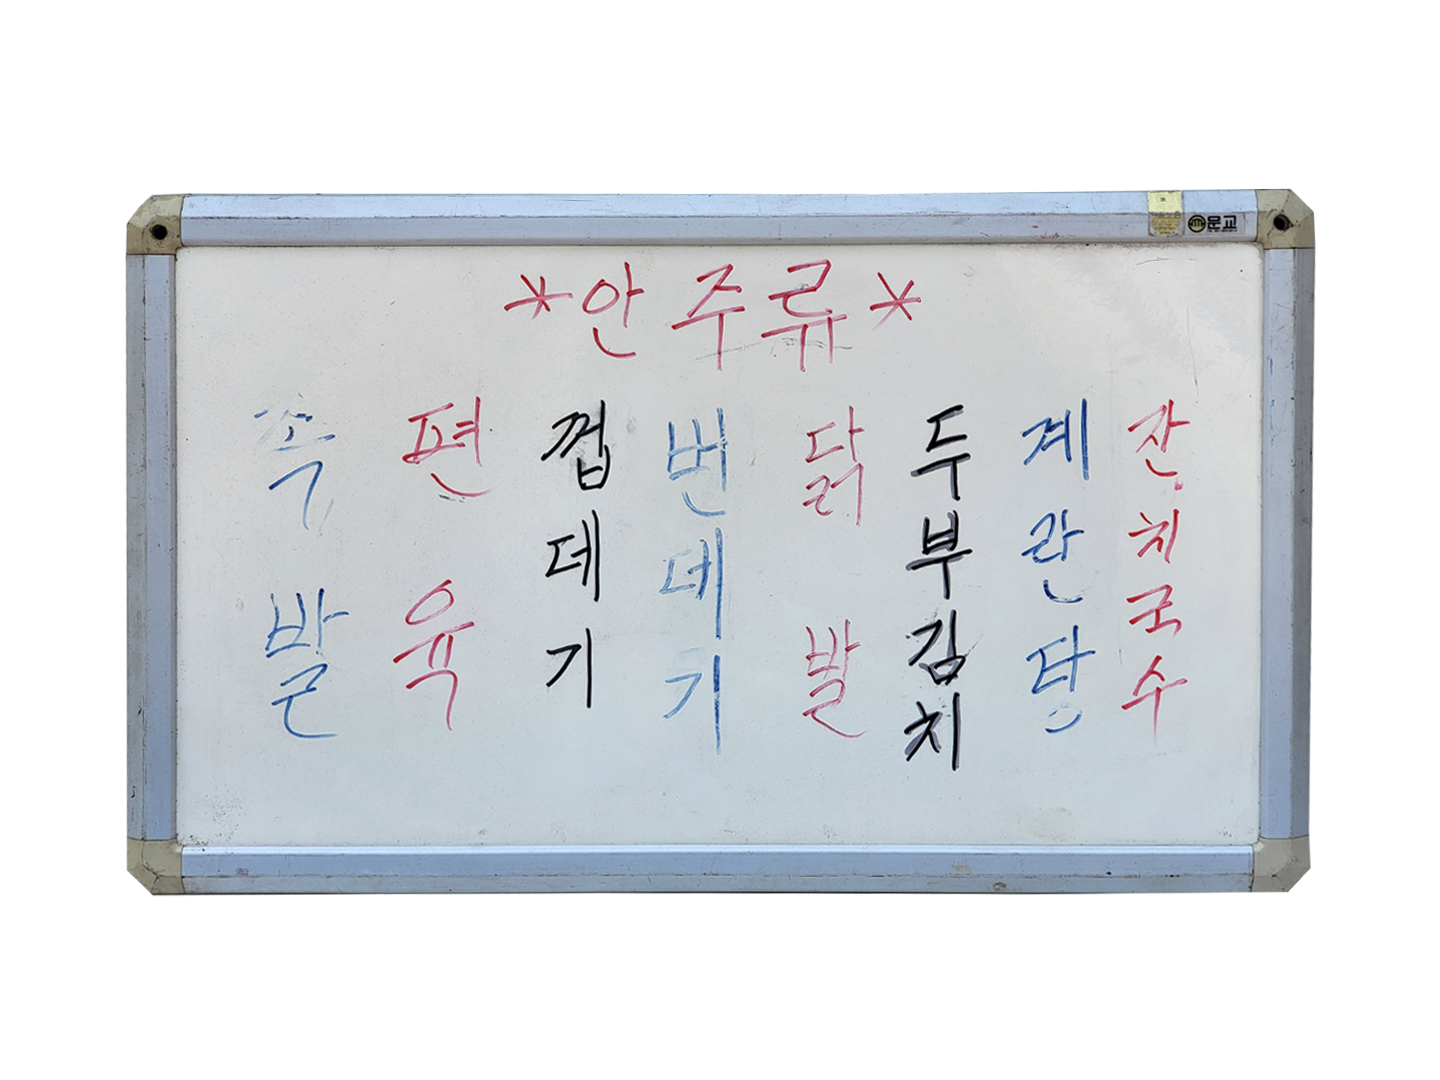 문교
*안주류*
족발
편육
껍데기
번데기
닭발
두부김치
계란탕
잔치국수